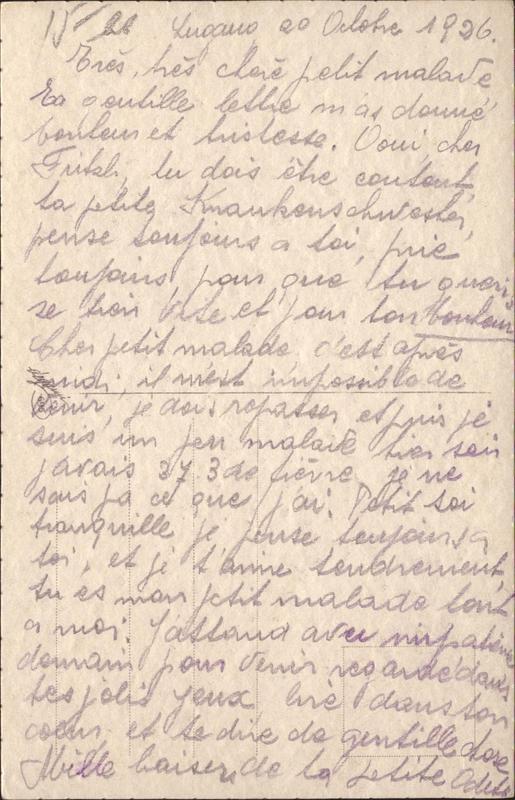 Lugano 20 Octobre 1926.
Très, très cheré petit malade
Ta gentille lettre m'as donné
bonheur et tristesse. Ooui cher
Fritzli, tu dois être content,
ta petite Krankenschwester,
pense toujours a toi, prie
toujours, pour que tu gueris-
se bien vite et pour ton bonheur
Cher petit malade, c'est après
midi, il m'est impossible de
venir, je dois repasser et puis je
suis un peu malade hier soir
j'avais 37,3 de fièvre, je ne
sais pa ce que j'ai. Petit soi
tranquille je pense toujours a
toi, et je t'aime tendrement,
tu es mon petit malade tout
a moi. J'attand avec impatience
domain pour venir regardé dans
tes jolis yeux liré dans ton
coeur et te dire de gentille chose
Mille baisers de ta petite Odette